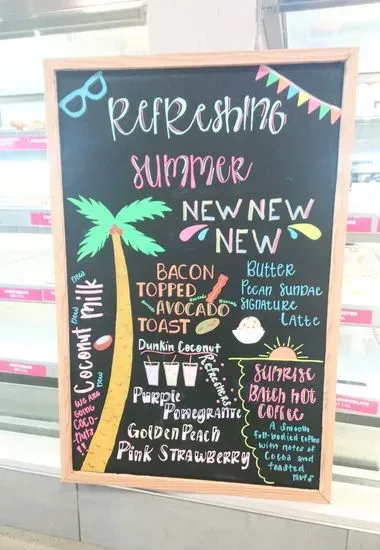 Refreshing
Summer
NEW NEW
NEW
BACON
TOPPED
AVOCADO
TOAST
Butter
Pecan Sundae
Signature
Latte
new
new
new
Coconut Milk
WE ARE
GOING
COCO-
NUTS
!!
Dunkin Coconut
Refreshers
Purple
Pomegranate
Golden Peach
Pink Strawberry
SUNRISE
Batch Hot
Coffee
A smooth
full-bodied coffee
with notes of
Cocoa and
toasted
nuts